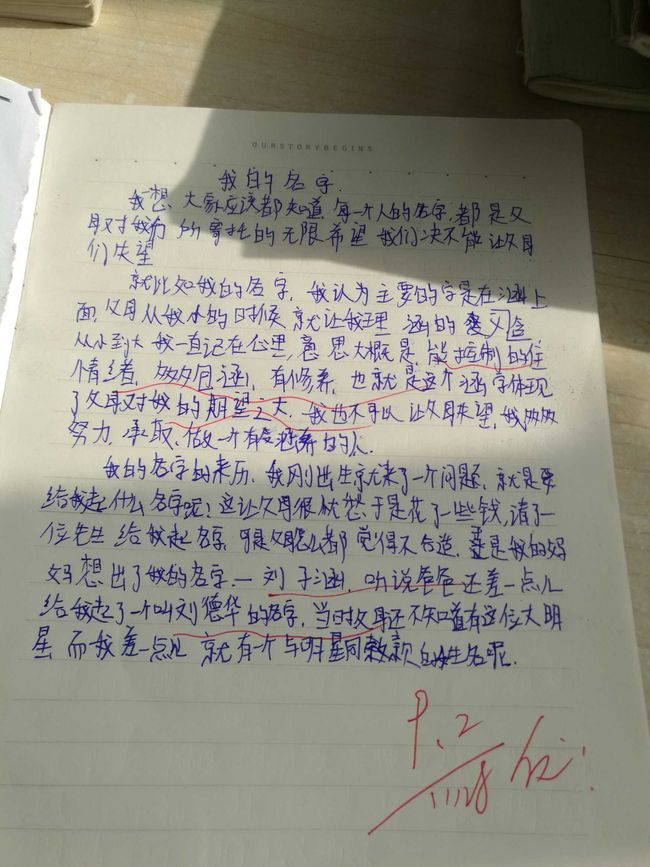 OURSTORYBEGINS
我的名字.
我想,大家应该都知道,每一个人的名字,都是父
母对我们所寄托的无限希望,我们决不能让父母
们失望
就比如我的名字,我认为主要的字是在涵上
面,父母从我小的时候就让我理 涵的意义
从小到大我一直记在心里,意思大概是,能控制的住
情绪,有涵,有修养,也就是这个涵字体现
了父母对我的期望之大.我也不可以让父母失望,我
努力,争取,做一个有修养的人.
我的名字的来历,我刚出生就来了一个问题,就是要
给我起什么名字呢?这让父母很忧愁于是花了一些钱,请了一
位先生给我起名字,可是父母怎么都觉得不合适,是我的妈
妈想出了我的名字,一刘子涵,听说爸爸还差一点儿
给我起了一个叫刘德华的名字,当时父母还不知道有这位大明
星而我差一点儿就有一个与明星同款的姓名呢.
9.2
11.28